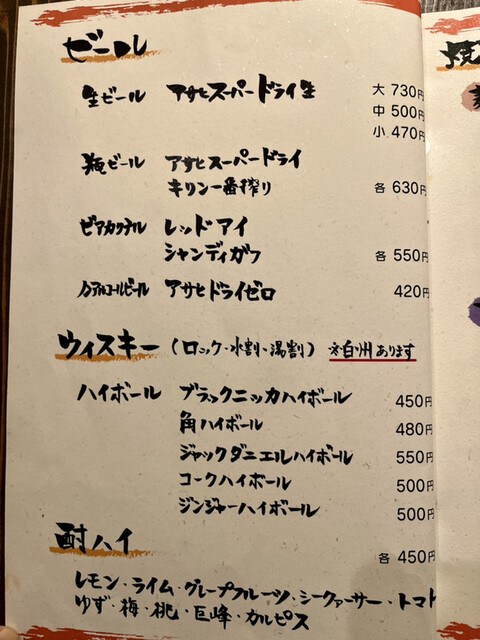 ビール
生ビール アサヒスーパードライ生 大 730円
中 500円
小 470円
瓶ビール アサヒスーパードライ
キリン一番搾り 各 630円
ビアカクテル レッドアイ
シャンディガフ 各 550円
ノンアルコールビール アサヒドライゼロ 420円
ウィスキー (ロック・水割・湯割) ※白州あります
ハイボール ブラックニッカハイボール 450円
角ハイボール 480円
ジャックダニエルハイボール 550円
コークハイボール 500円
ジンジャーハイボール 500円
酎ハイ 各 450円
レモン・ライム・グレープフルーツ・シークァーサー・トマト
ゆず・梅・桃・巨峰・カルピス
焼